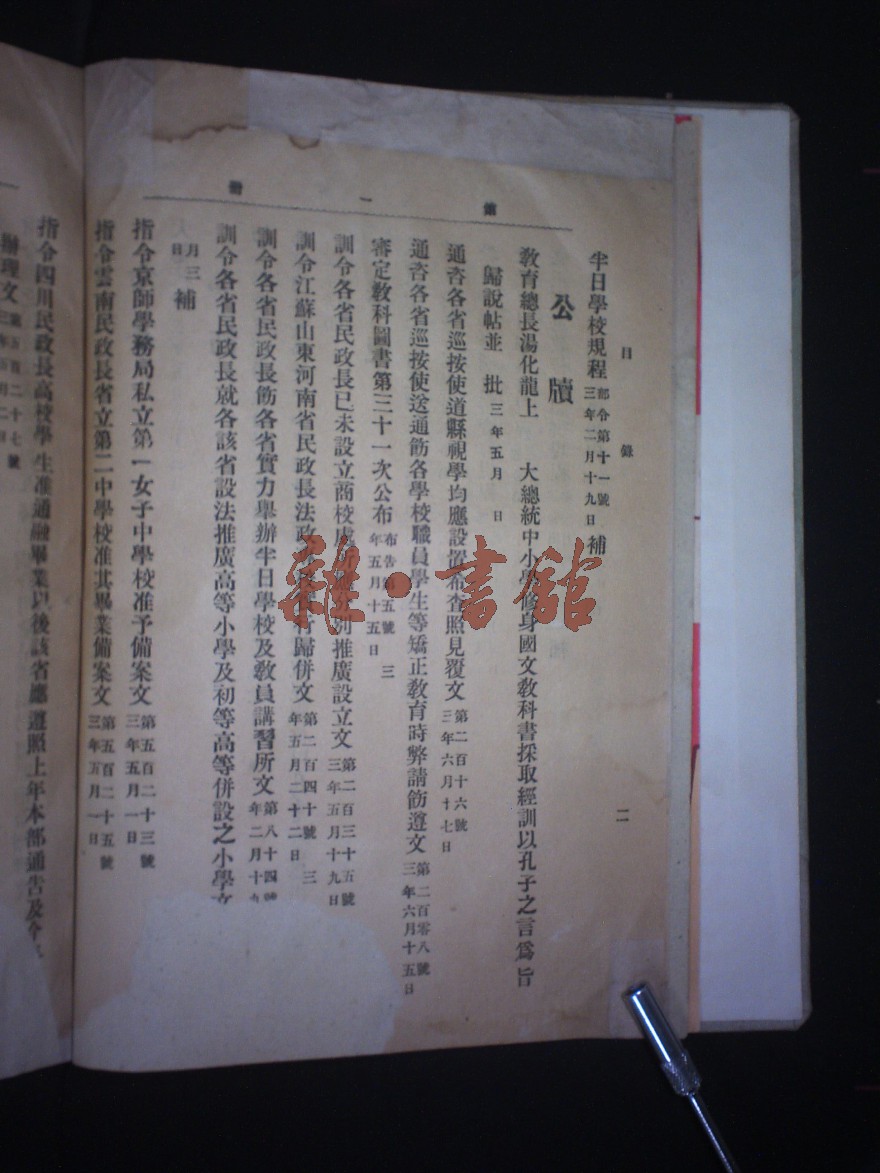 第一冊
目錄
二
半日學校規程 部令第十一號 三年二月十九日 補
公牘
教育總長湯化龍上 大總統中小學修身國文教科書採取經訓以孔子之言爲旨
歸說帖並 批 三年五月 日
通咨各省巡按使道縣視學均應設置布查照見覆文 第二百十六號 三年六月十七日
通咨各省巡按使送通飭各學校職員學生等矯正教育時弊請飭遵文 第二百零八號 三年六月十五日
審定教科圖書第三十一次公布 布告第五號 三年五月十五日
訓令各省民政長已未設立商校處所 分別推廣設立文 第二百三十五號 三年五月十九日
訓令江蘇山東河南省民政長法政 行歸併文 第二百四十號 三年五月二十二日
訓令各省民政長飭各省實力舉辦半日學校及教員講習所文 第八十四號 年二月十九
訓令各省民政長就各該省設法推廣高等小學及初等高等併設之小學文
月三日 補
指令京師學務局私立第一女子中學校准予備案文 第五百二十三號 三年五月一日
指令雲南民政長省立第二中學校准其畢業備案文 第五百二十五號 三年五月一日
指令四川民政長高校學生准通融畢業以後該省應遵照上年本部通告及令
辦理文 第五百二十七號 三年五月二日
雜·書館